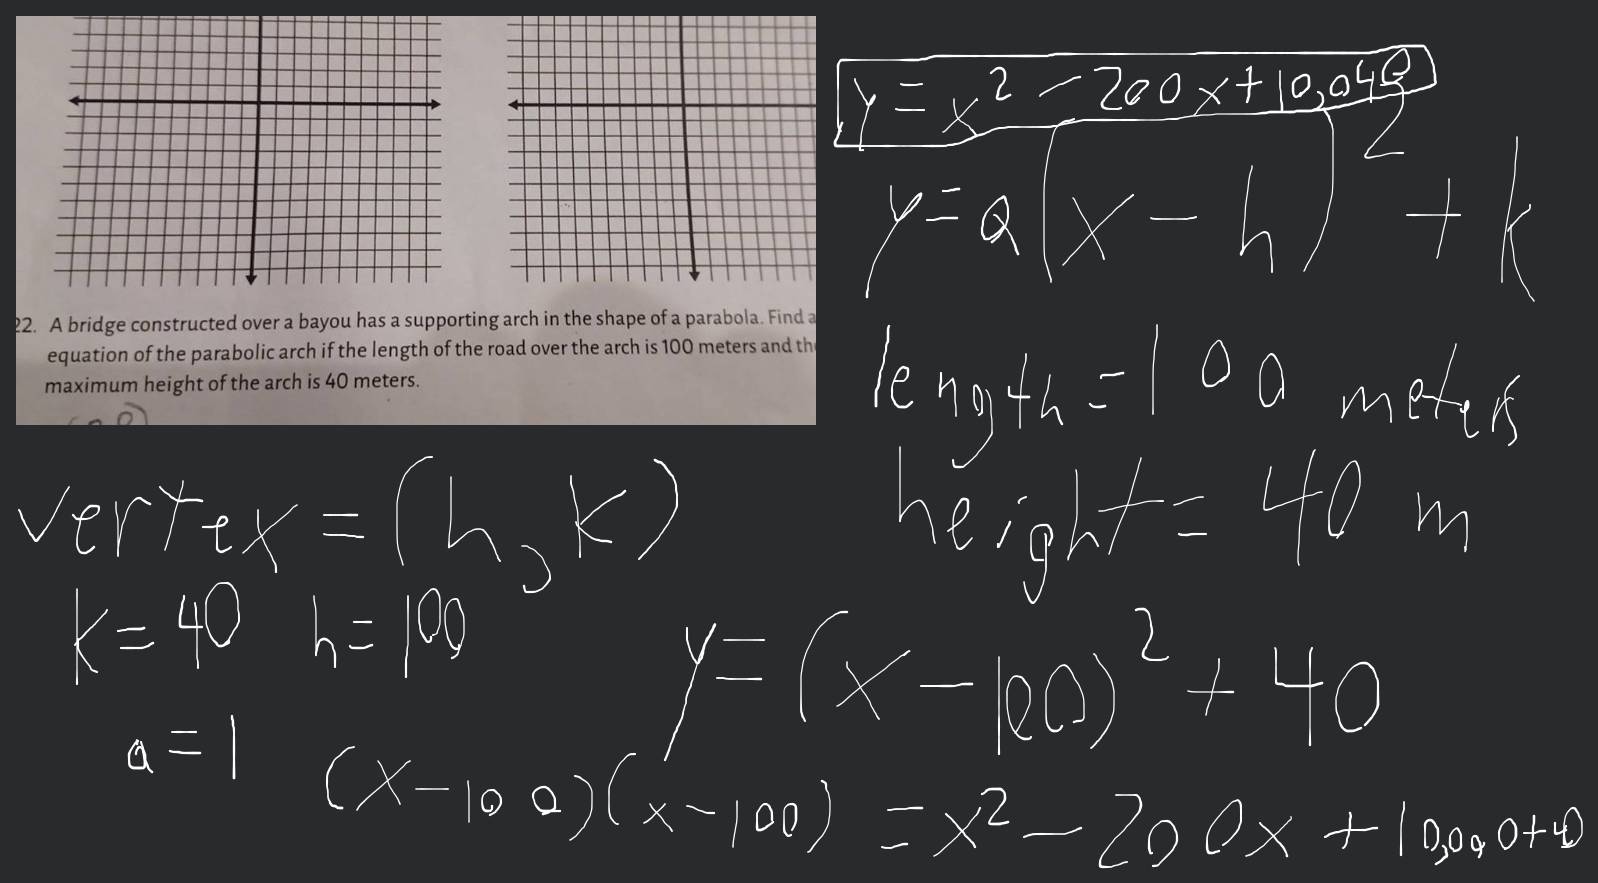 22. A bridge constructed over a bayou has a supporting arch in the shape of a parabola. Find a
equation of the parabolic arch if the length of the road over the arch is 100 meters and th
maximum height of the arch is 40 meters.
y = x² - 200x + 10,040
y = a(x - h)² + k
length = 100 meters
height = 40 m
vertex = (h, k)
k = 40 h = 100
a = 1
y = (x - 100)² + 40
(x - 100)(x - 100) = x² - 200x + 10,000 + 40